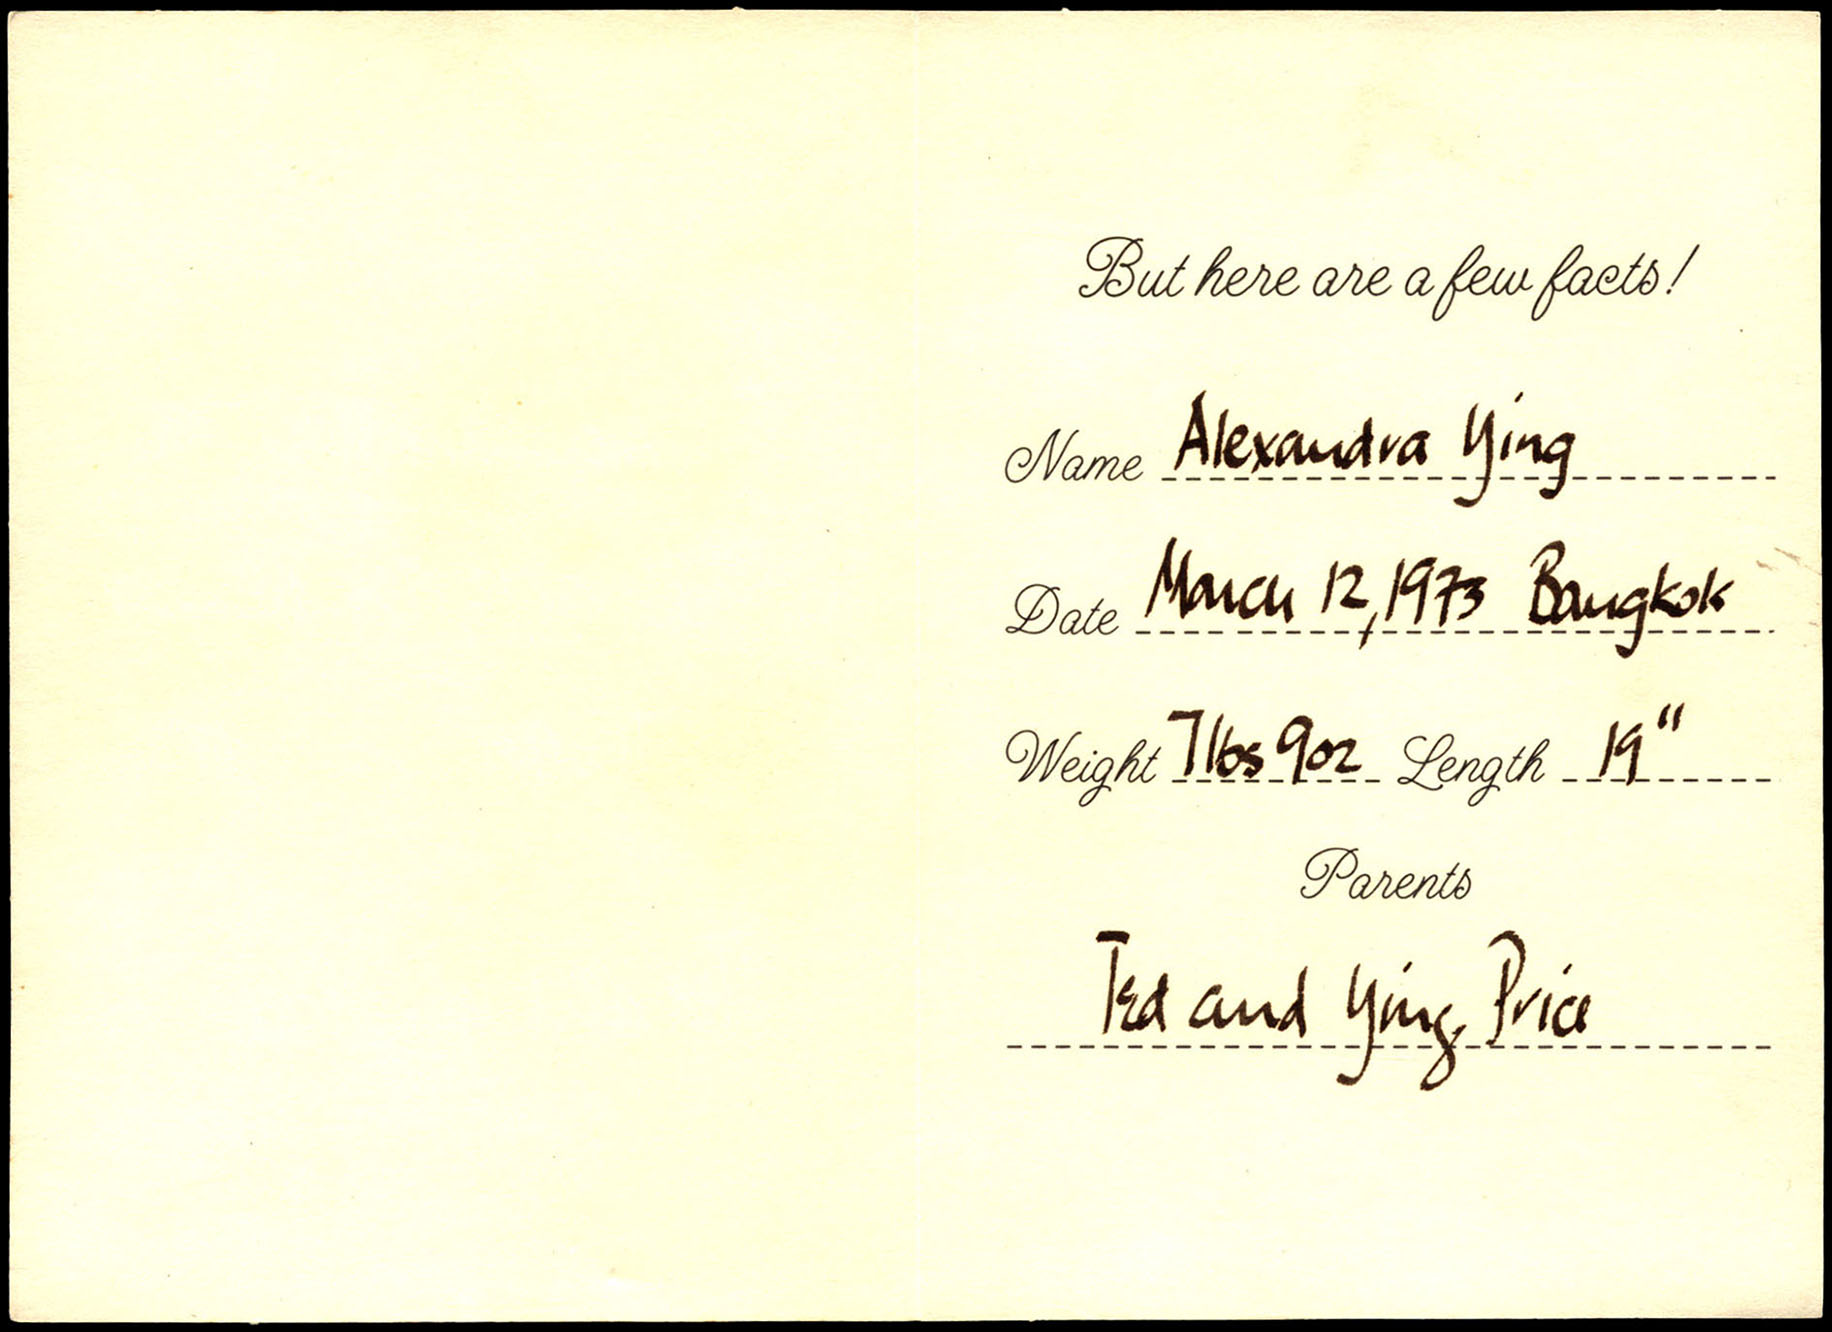 But here are a few facts!
Name Alexandra Ying
Date March 12, 1973 Bangkok
Weight 7lbs 9oz Length 19"
Parents
Ted and Ying Price